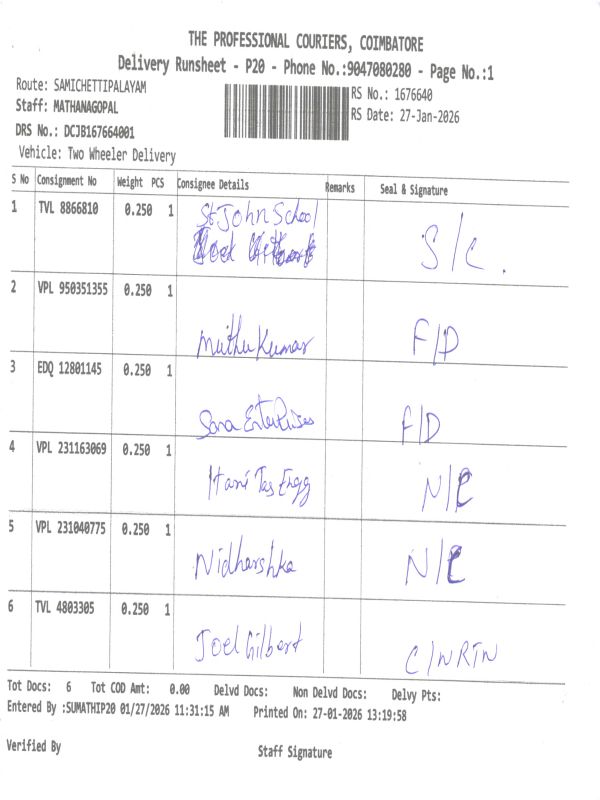 THE PROFESSIONAL COURIERS, COIMBATORE
Delivery Runsheet - P20 - Phone No.:9047080280 - Page No.:1
Route: SAMICHETTIPALAYAM
RS No.: 1676640
Staff: MATHANAGOPAL
RS Date: 27-Jan-2026
DRS No.: DCJB167664001
Vehicle: Two Wheeler Delivery
S No Consignment No Weight PCS Consignee Details Remarks Seal & Signature
1 TVL 8866810 0.250 1 St John School S/C.
2 VPL 950351355 0.250 1 Muthu Kumar F/D
3 EDQ 12801145 0.250 1 Sara F/D
4 VPL 231163069 0.250 1 Engg N/C
5 VPL 231040775 0.250 1 Nidharshka N/C
6 TVL 4803305 0.250 1 Joel Gilbert C/N RTN
Tot Docs: 6 Tot COD Amt: 0.00 Delvd Docs: Non Delvd Docs: Delvy Pts:
Entered By :SUMATHIP20 01/27/2026 11:31:15 AM Printed On: 27-01-2026 13:19:58
Verified By
Staff Signature